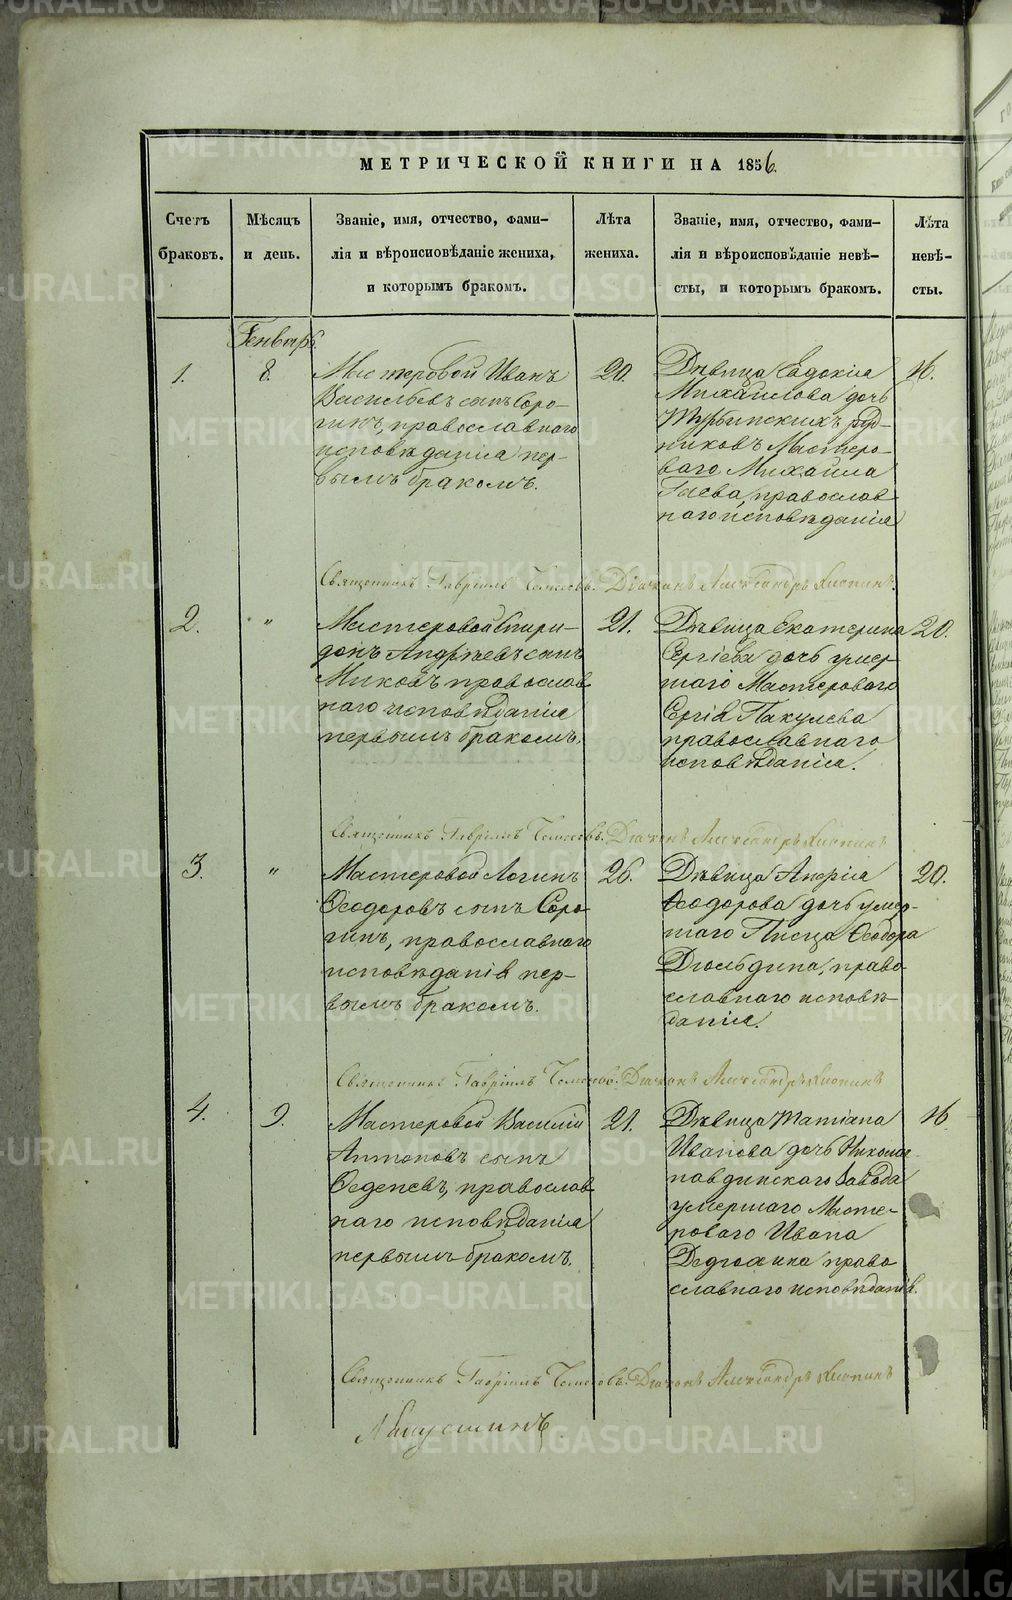 МЕТРИЧЕСКОЙ КНИГИ НА 1856.
Счетъ браковъ.
Мѣсяцъ и день.
Званіе, имя, отчество, фами-
лія и вѣроисповѣданіе жениха,
и которымъ бракомъ.
Лѣта жениха.
Званіе, имя, отчество, фами-
лія и вѣроисповѣданіе невѣ-
сты, и которымъ бракомъ.
Лѣта невѣ-
сты.
Генварь
1.
8.
Мастеровой Иванъ
Васильевъ сынъ Соро-
гинъ, православнаго
исповѣданія пер-
вымъ бракомъ.
20.
Дѣвица Евдокія
Михайлова дочь
Турьинскихъ руд-
никовъ Мастеро-
ваго Михаила
Гаева, православ
наго исповѣданія
16.
Священникъ Гавріилъ Діаконъ Александръ
2.
"
Мастеровой Спири-
донъ Андреевъ сынъ
Миковъ православ
наго исповѣданія
первымъ бракомъ.
21.
Дѣвица Екатерина
Сергіева дочь умер
шаго Мастероваго
Сергія Пакулева
православнаго
исповѣданія.
20.
Священникъ Гавріилъ Діаконъ Александръ
3.
"
Мастеровой Логинъ
Ѳеодоровъ сынъ Соро
гинъ, православнаго
исповѣданія пер-
вымъ бракомъ.
26.
Дѣвица
Ѳеодорова дочь умер-
шаго Писца Ѳеодора
Дюльдина, право
славнаго исповѣ-
данія.
20.
Священникъ Гавріилъ Діаконъ Александръ
4.
9.
Мастеровой Василій
Антоновъ сынъ
Феденевъ, православ
наго исповѣданія
первымъ бракомъ.
21.
Дѣвица Татіана
Иванова дочь Николае
павдинскаго Завода
умершаго Масте-
роваго Ивана
Дедюхина право
славнаго исповѣданія.
16
Священникъ Гавріилъ Діаконъ Александръ
METRIKI.GASO-URAL.RU